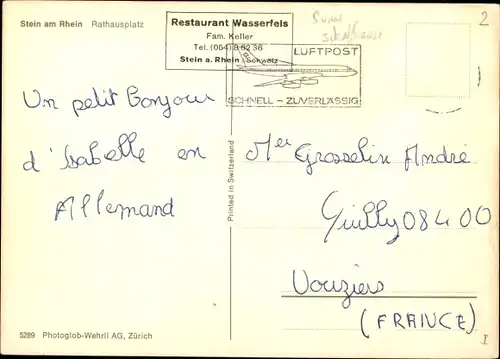 Stein am Rhein Rathausplatz
Restaurant Wasserfels
Fam. Keller
Tel. (054) 8 62 36
Stein a. Rhein / Schweiz
LUFTPOST
SCHNELL – ZUVERLÄSSIG
Suisse
2
Un petit Bonjour
d'Isabelle en
Allemand
Printed in Switzerland
Mer Grosselin André
Quilly 08400
Vouziers
(FRANCE)
5289 Photoglob-Wehrli AG, Zürich
I